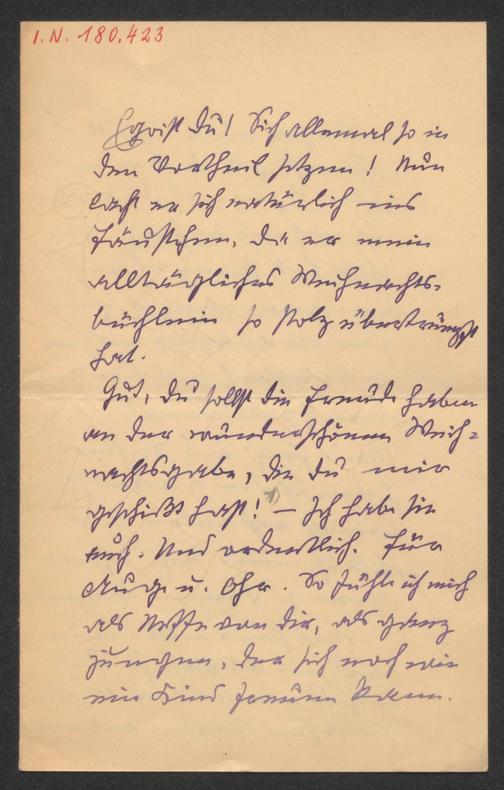 I.N. 180.423
Egoist Du! Sich allemal so in
den Vortheil setzen! Nun
lacht er sich natürlich ins
Fäustchen, da er mein
alltägliches Weihnachts-
büchlein so stolz übertrumpft
hat.
Gut, Du sollst die Freude haben
an der wunderschönen Weih-
nachtsgabe, die Du mir
geschickt hast! – Ich habe sie
auch. Und ordentlich. Für
Auge u. Ohr. So fühle ich mich
als Neffe von Dir, als ganz
jungen, der sich noch wie
ein Kind freuen kann.